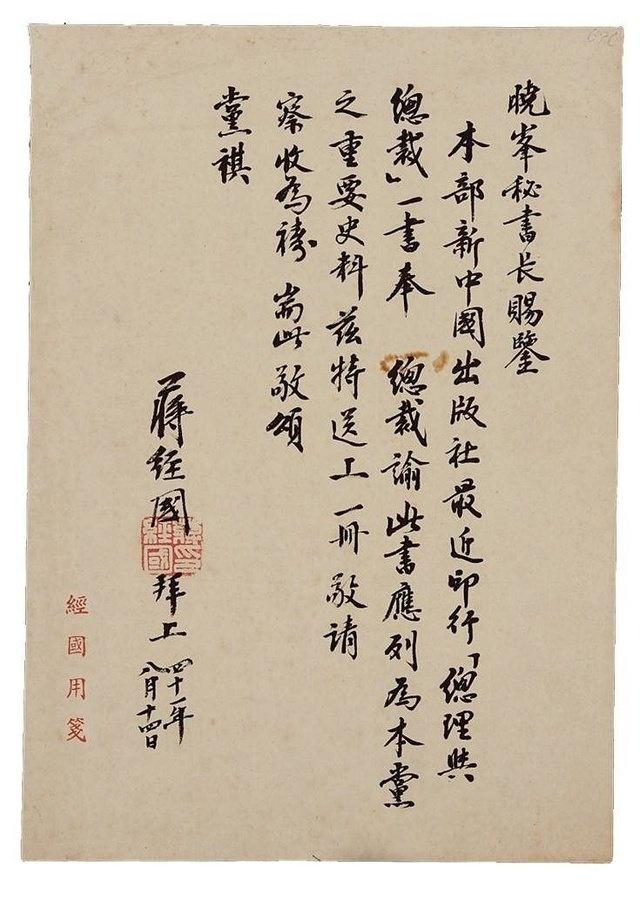 曉峯秘書長賜鑒
本部新中國出版社最近印行「總理與
總裁」一書奉 總裁諭此書應列為本黨
之重要史料茲特送上一冊敬請
察收為禱 耑此敬頌
黨祺
蔣經國 拜上 四十一年
八月十四日
蔣經國印
經國用箋